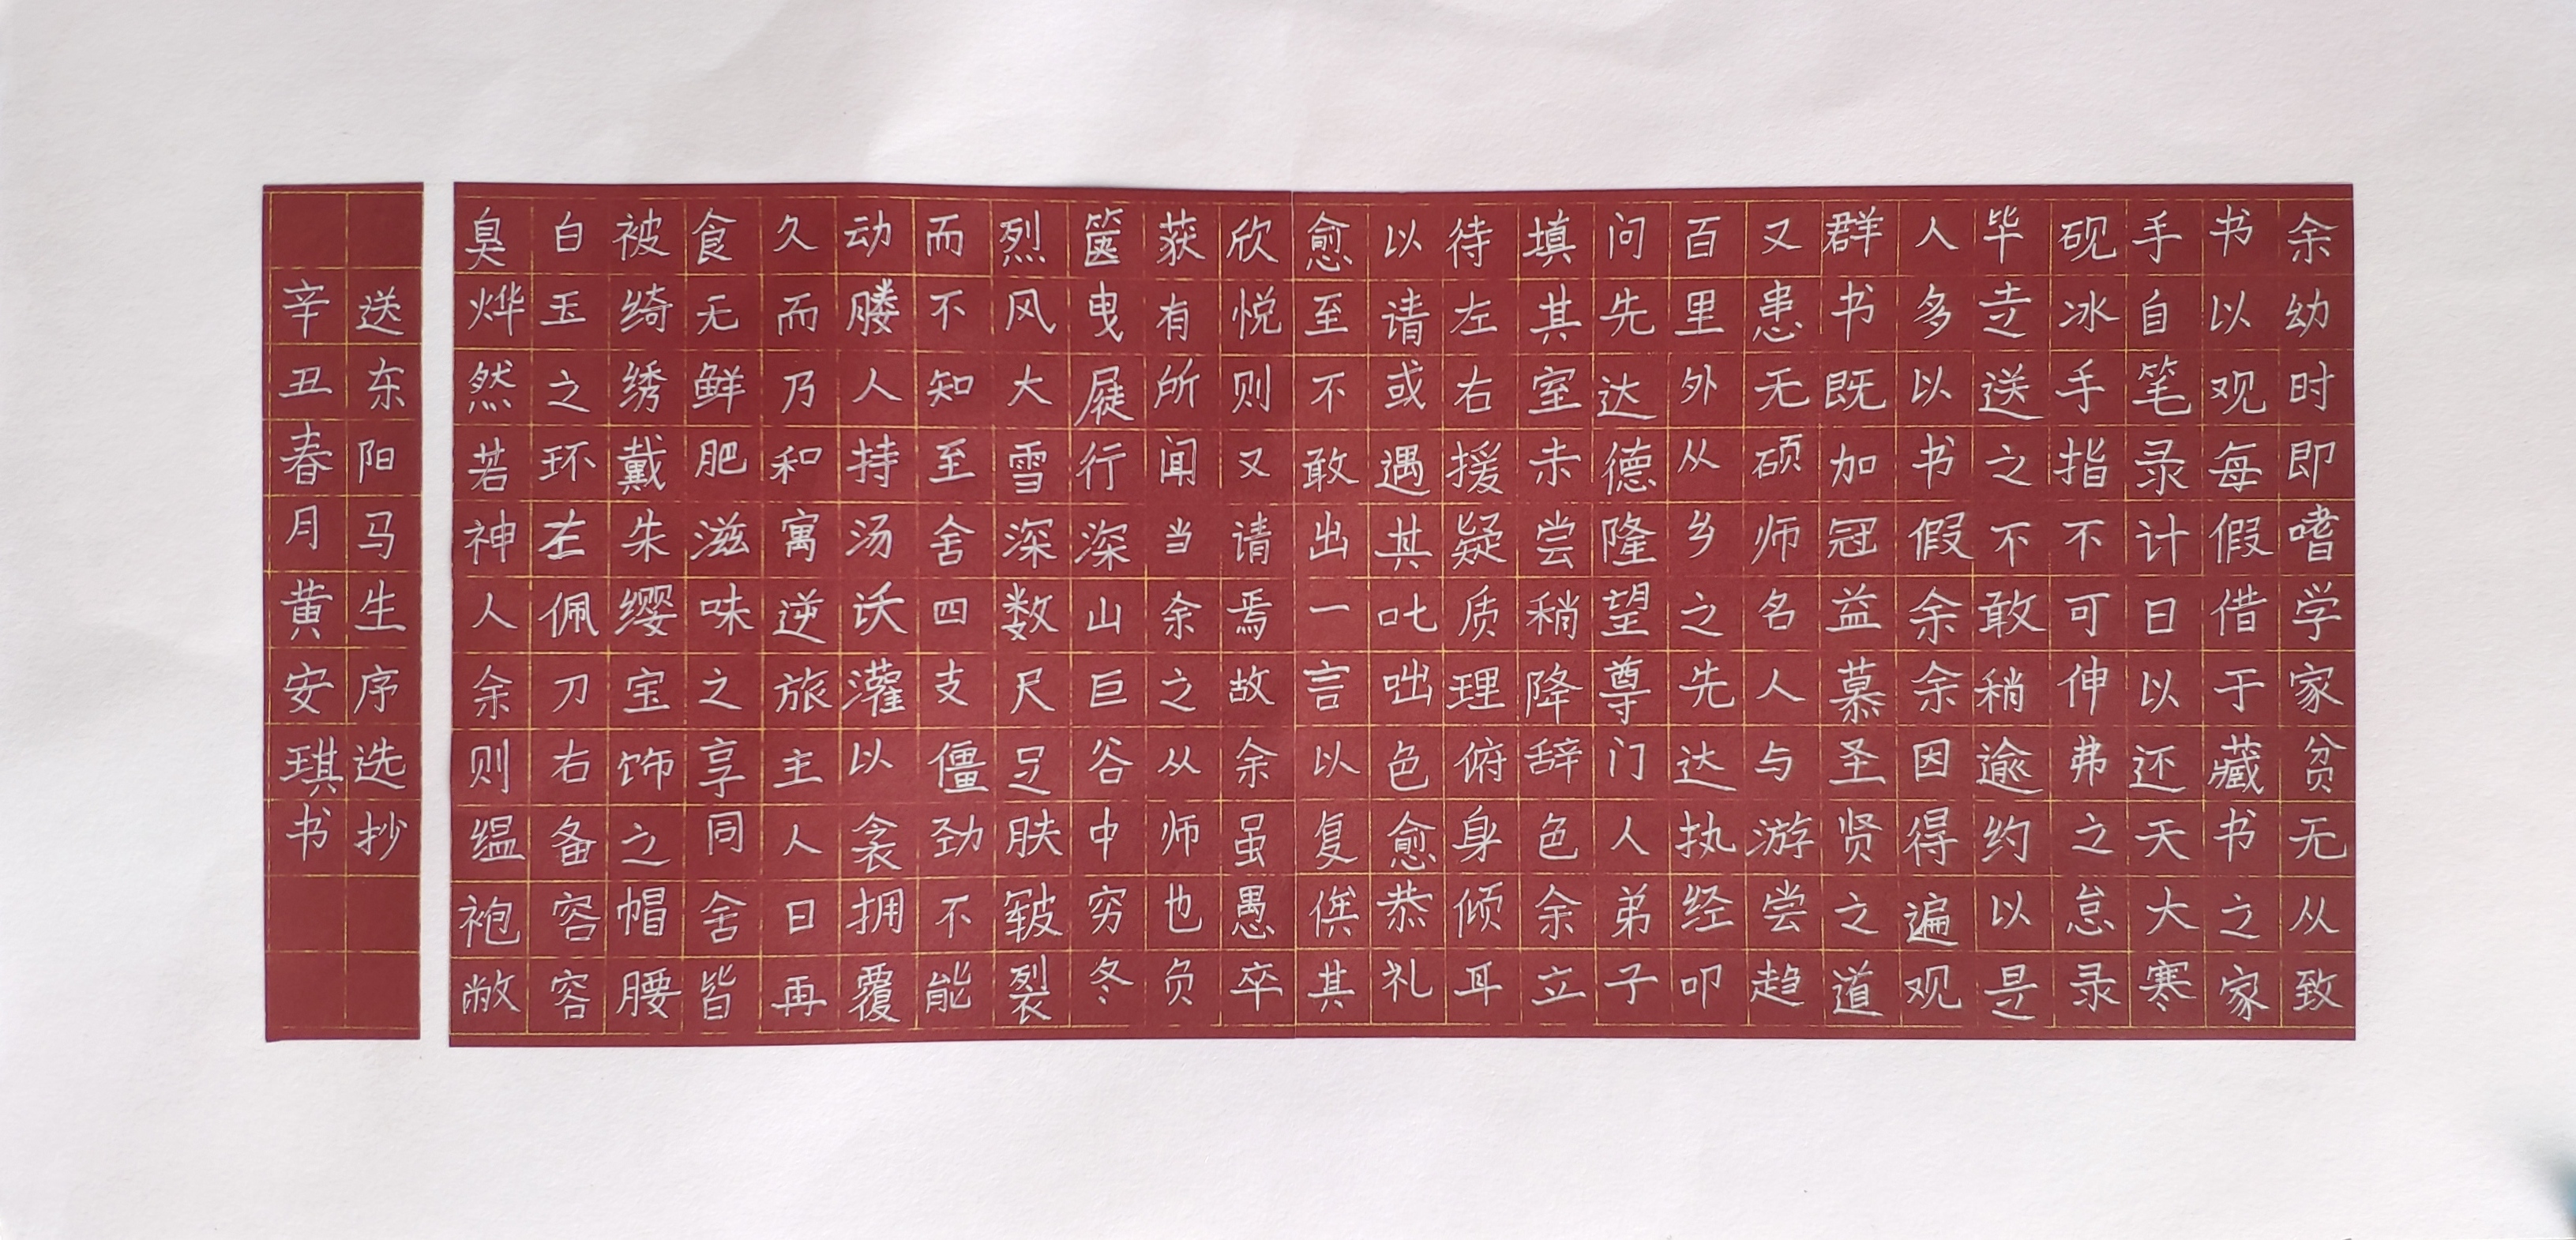 余幼时即嗜学家贫无从致
书以观每假借于藏书之家
手自笔录计日以还天大寒
砚冰手指不可伸弗之怠录
毕走送之不敢稍逾约以是
人多以书假余余因得遍观
群书既加冠益慕圣贤之道
又患无硕师名人与游尝趋
百里外从乡之先达执经叩
问先达德隆望尊门人弟子
填其室未尝稍降辞色余立
待左右援疑质理俯身倾耳
以请或遇其叱咄色愈恭礼
愈至不敢出一言以复俟其
欣悦则又请焉故余虽愚卒
获有所闻当余之从师也负
箧曳屣行深山巨谷中穷冬
烈风大雪深数尺足肤皲裂
而不知至舍四支僵劲不能
动媵人持汤沃灌以衾拥覆
久而乃和寓逆旅主人日再
食无鲜肥滋味之享同舍皆
被绮绣戴朱缨宝饰之帽腰
白玉之环左佩刀右备容容
臭烨然若神人余则缊袍敝
送东阳马生序选抄
辛丑春月黄安琪书